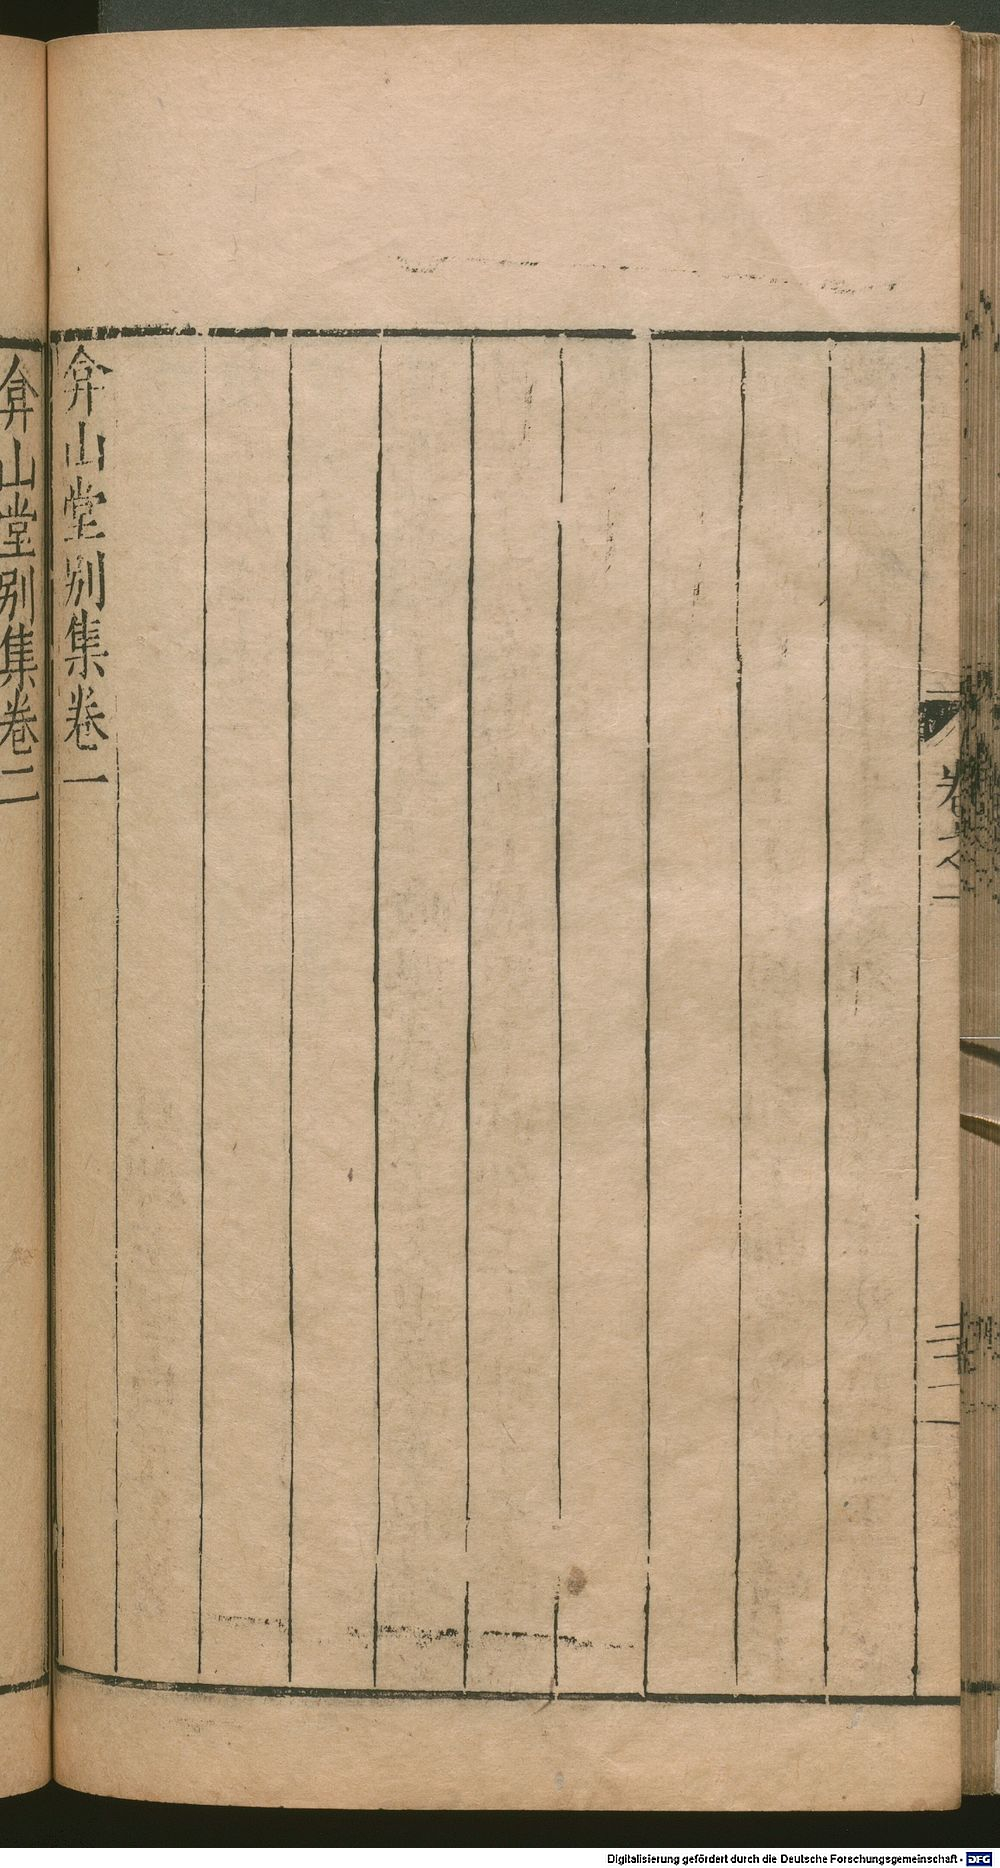 卷之一
弇山堂別集卷一
弇山堂別集卷二
Digitalisierung gefördert durch die Deutsche Forschungsgemeinschaft - DFG